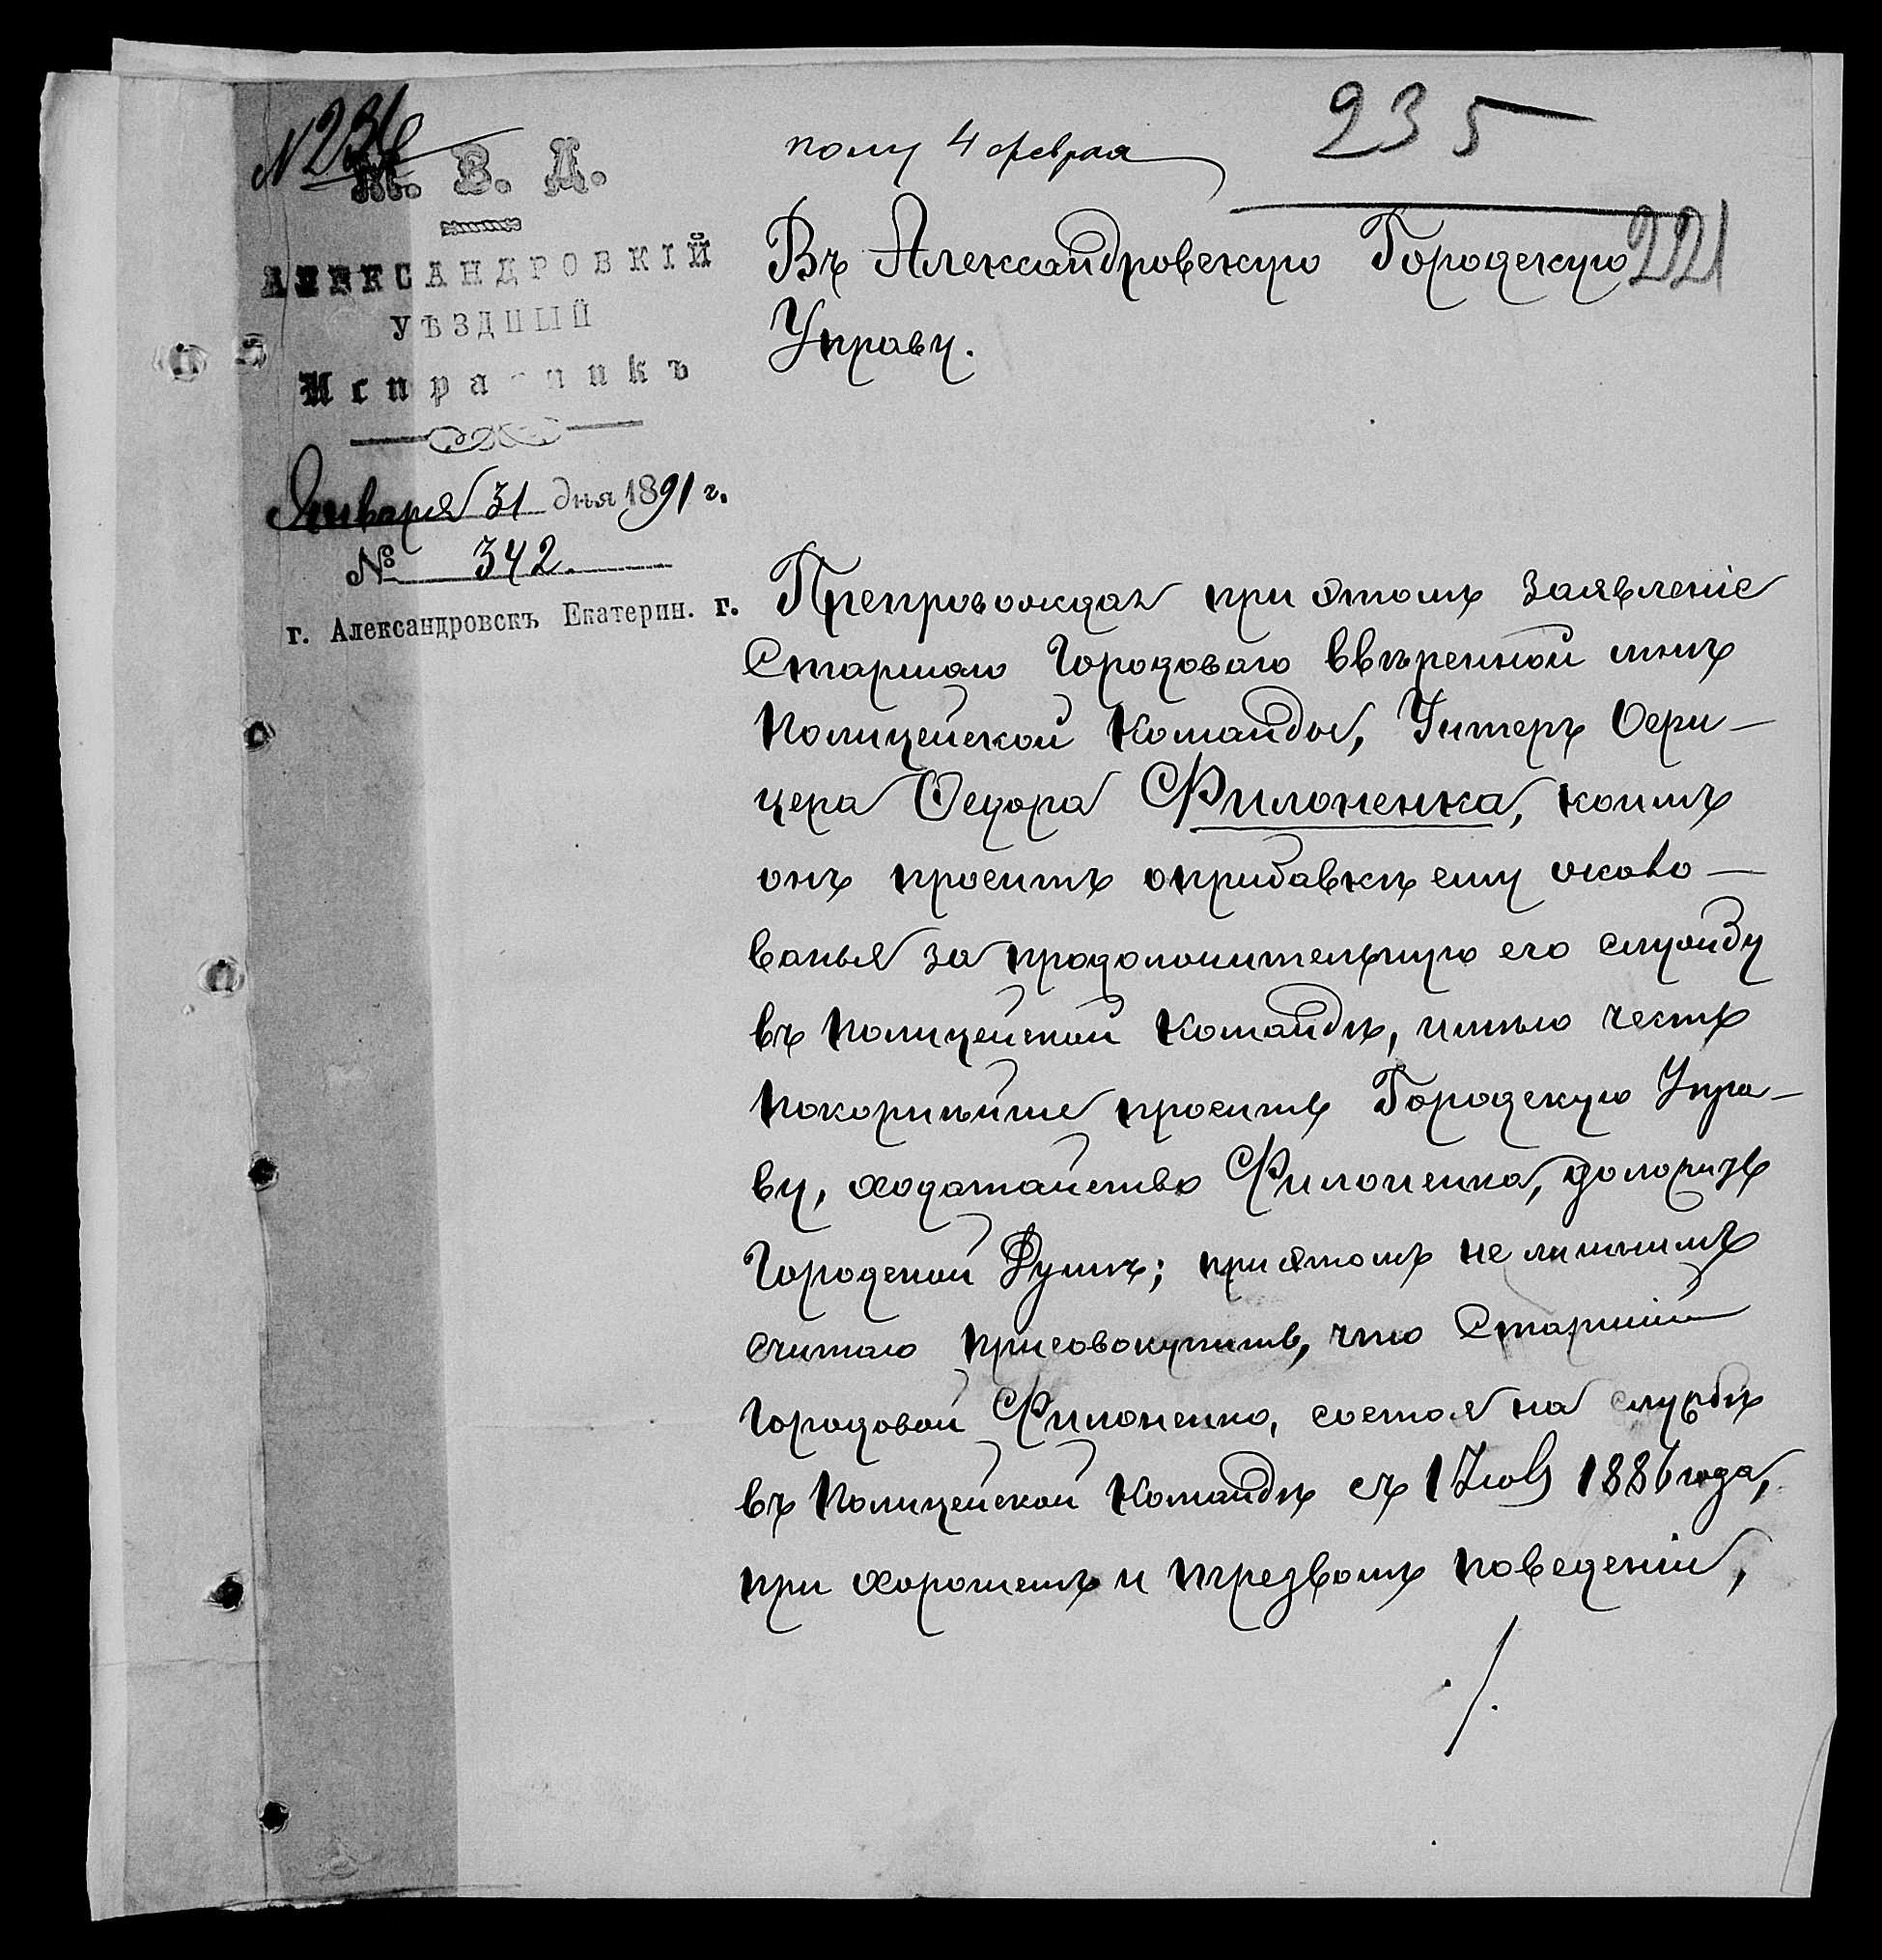 № 236
полу 4 февраля
235
221
М. В. Д.
АЛЕКСАНДРОВКІЙ
УѢЗДНЫЙ
Исправникъ
Января 31 дня 1891 г.
№ 342.
г. Александровскъ Екатерин. г.
Въ Александровскую Городскую
Управу.
Препровождая при этомъ заявленіе
Старшаго Городоваго ввѣренной мнѣ
Полицейской Команды, Унтеръ Офи-
цера Ѳедора Филоненка, коимъ
онъ проситъ о прибавкѣ ему жалово-
ванья за продолжительную его службу
въ Полицейской Командѣ, имѣю честь
покорнѣйше просить Городскую Упра-
ву, ходатайство Филоненка, доложить
Городской Думѣ; при этомъ не лишнимъ
считаю присовокупить, что Старшій
Городовой Филоненко, состоя на службѣ
въ Полицейской Командѣ съ 1 1886 года,
при хорошемъ и трезвомъ поведеніи,
./.